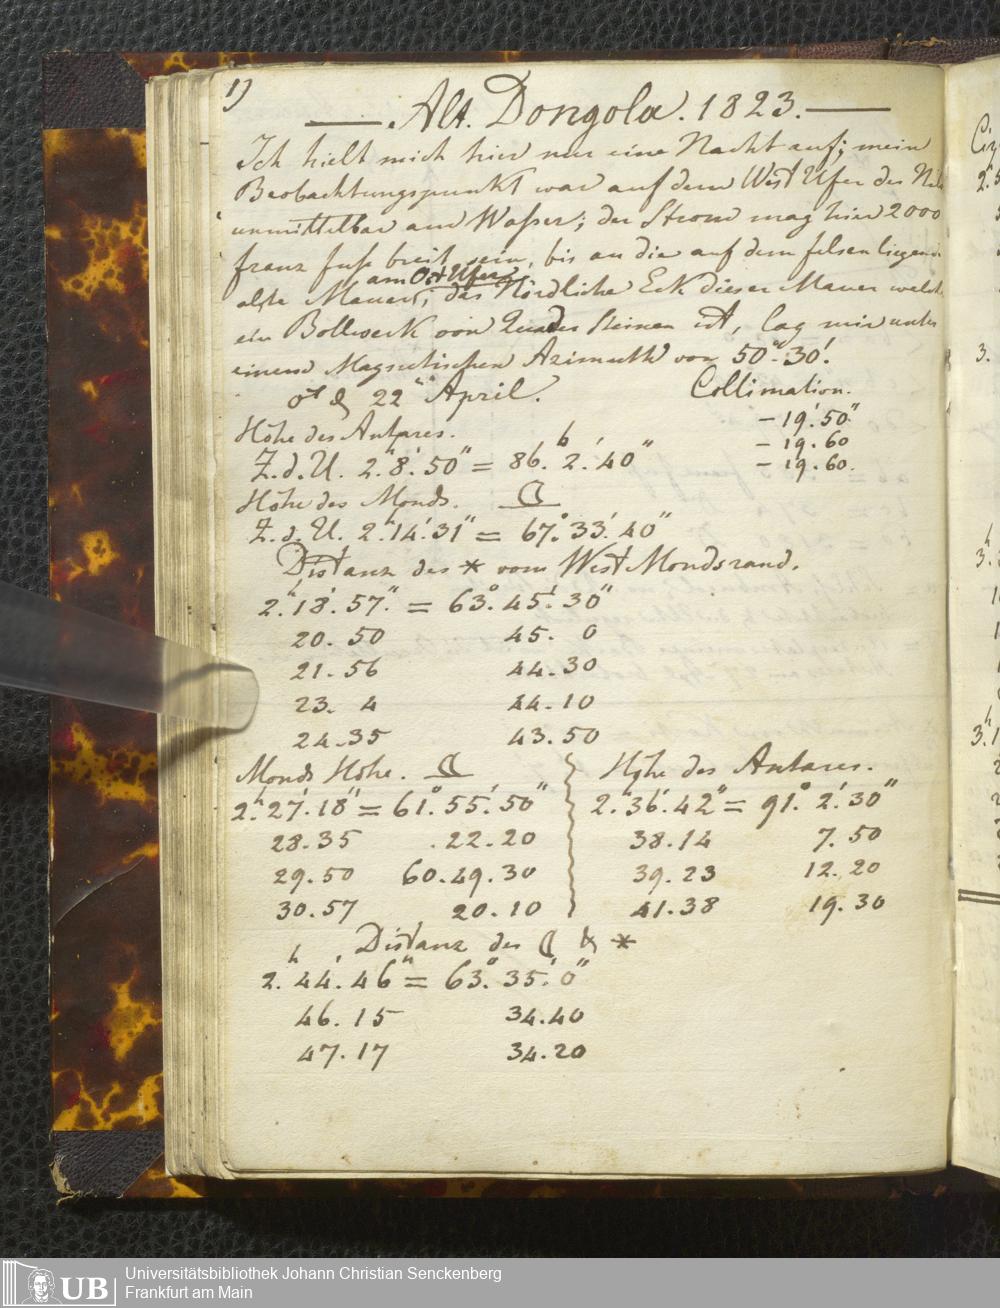 19
Alt. Dongola. 1823.
Ich hielt mich hier nur eine Nacht auf; mein
Beobachtungspunkt war auf dem West Ufer des Nils
unmittelbar am Wasser; der Strom mag hier 2000
franz fuss breit sein, bis an die auf dem felsen liegende
am Ost Ufer
alte Mauer, das Nördliche Eck dieser Mauer welche
ein Bollwerk von Quader Steinen ist, lag mir unter
einem Magnetischen Azimuth von 50°.30'.
♂ d 22 April. Collimation.
Höhe des Antares. - 19'.50"
- 19.60
Z.d.U. 2.h8'.50" = 86.°2'.40" - 19.60.
Höhe des Monds.
Z.d.U. 2.h14'.31" = 67.°33'.40"
Distanz des * vom West Mondsrand.
2.h18'.57." = 63°.45'.30"
20.50 45. 0
21.56 44.30
23. 4 44.10
24.35 43.50
Monds Höhe. Höhe des Antares.
2.h27'.18" = 61.°55'.50" 2.h36'.42" = 91.°2'.30"
28.35 .22.20 38.14 7.50
29.50 60.49.30 39.23 12.20
30.57 20.10 41.38 19.30
Distanz des ☾ & *
2.h44.46" = 63.°35'.0"
46.15 34.40
47.17 34.20
UB
Universitätsbibliothek Johann Christian Senckenberg
Frankfurt am Main